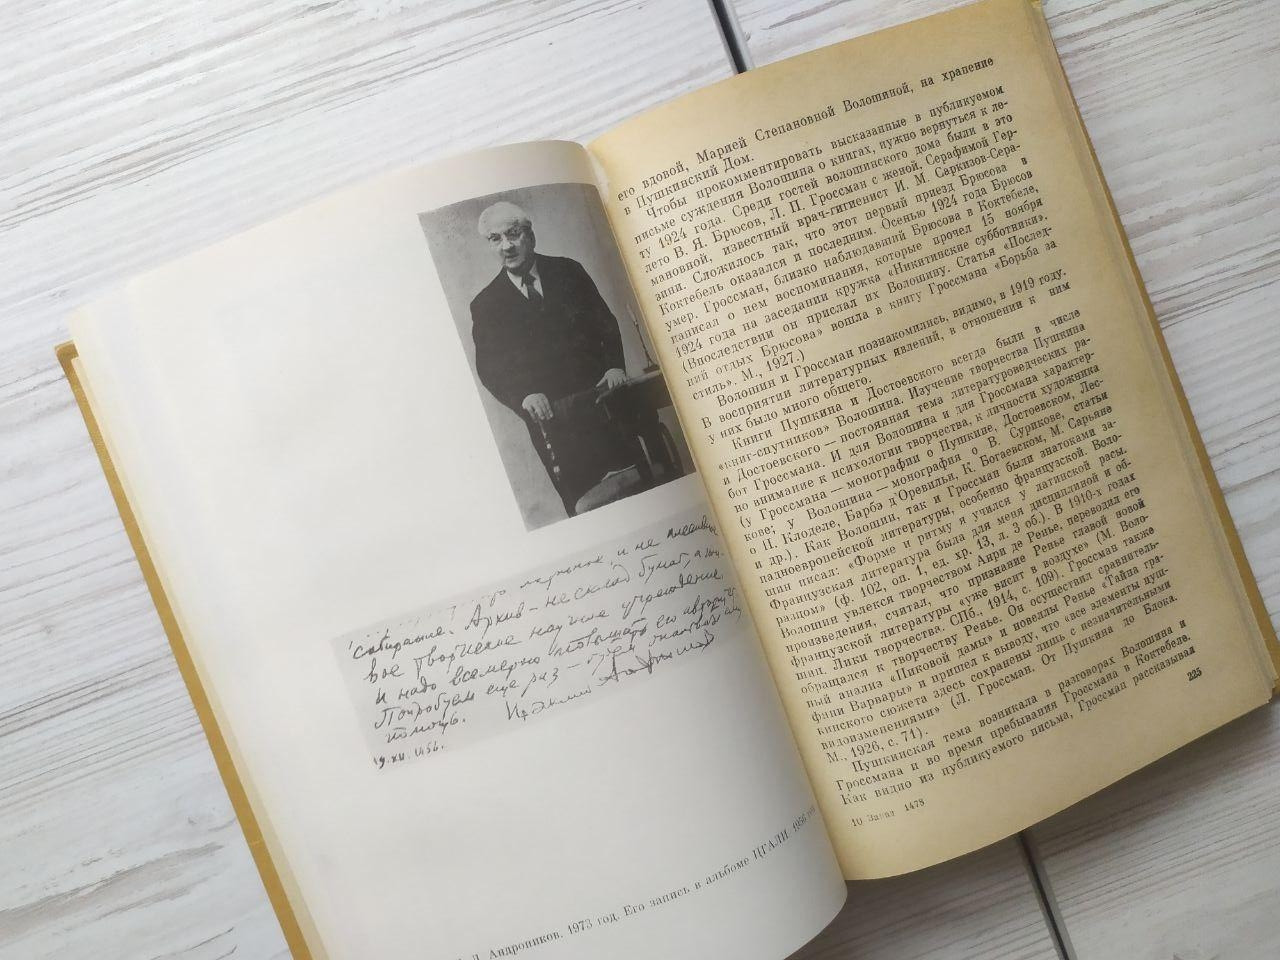 нужное, и не пассивное
собирание. Архив — не склад бумаг, а жи-
вое творческое научное учреждение
и надо всемерно повышать его авторитет
Попробуем еще раз —
помощь.
19.XII.1956.
Андроников. 1973 год. Его запись в альбоме ЦГАЛИ. 1956 год
его вдовой, Марией Степановной Волошиной, на хранение
в Пушкинский Дом.
Чтобы прокомментировать высказанные в публикуемом
письме суждения Волошина о книгах, нужно вернуться к ле-
ту 1924 года. Среди гостей волошинского дома были в это
лето В. Я. Брюсов, Л. П. Гроссман с женой, Серафимой Гер-
мановной, известный врач-гигиенист И. М. Саркизов-Сера-
зини. Сложилось так, что этот первый приезд Брюсова в
Коктебель оказался и последним. Осенью 1924 года Брюсов
умер. Гроссман, близко наблюдавший Брюсова в Коктебеле,
написал о нем воспоминания, которые прочел 15 ноября
1924 года на заседании кружка «Никитинские субботники».
(Впоследствии он прислал их Волошину. Статья «Послед-
ний отдых Брюсова» вошла в книгу Гроссмана «Борьба за
стиль». М., 1927.)
Волошин и Гроссман познакомились, видимо, в 1919 году.
В восприятии литературных явлений, в отношении к ним
у них было много общего.
Книги Пушкина и Достоевского всегда были в числе
«книг-спутников» Волошина. Изучение творчества Пушкина
и Достоевского — постоянная тема литературоведческих ра-
бот Гроссмана. И для Волошина и для Гроссмана характер-
но внимание к психологии творчества, к личности художника
(у Гроссмана — монографии о Пушкине, Достоевском, Лес-
кове; у Волошина — монография о В. Сурикове, статьи
о П. Клоделе, Барбэ д’Оревильи, К. Богаевском, М. Сарьяне
и др.). Как Волошин, так и Гроссман были знатоками за-
падноевропейской литературы, особенно французской. Воло-
шин писал: «Форме и ритму я учился у латинской расы.
Французская литература была для меня дисциплиной и об-
разцом» (ф. 102, оп. 1, ед. хр. 13, л. 3 об.). В 1910-х годах
Волошин увлекся творчеством Анри де Ренье, переводил его
произведения, считал, что признание Ренье главой новой
французской литературы «уже висит в воздухе» (М. Воло-
шин. Лики творчества. СПб. 1914, с. 109). Гроссман также
обращался к творчеству Ренье. Он осуществил сравнитель-
ный анализ «Пиковой дамы» и новеллы Ренье «Тайна гра-
фини Варвары» и пришел к выводу, что «все элементы пуш-
кинского сюжета здесь сохранены лишь с незначительными
видоизменениями» (Л. Гроссман. От Пушкина до Блока.
М., 1926, с. 71).
Пушкинская тема возникала в разговорах Волошина и
Гроссмана и во время пребывания Гроссмана в Коктебеле.
Как видно из публикуемого письма, Гроссман рассказывал
10 Заказ 1478
225